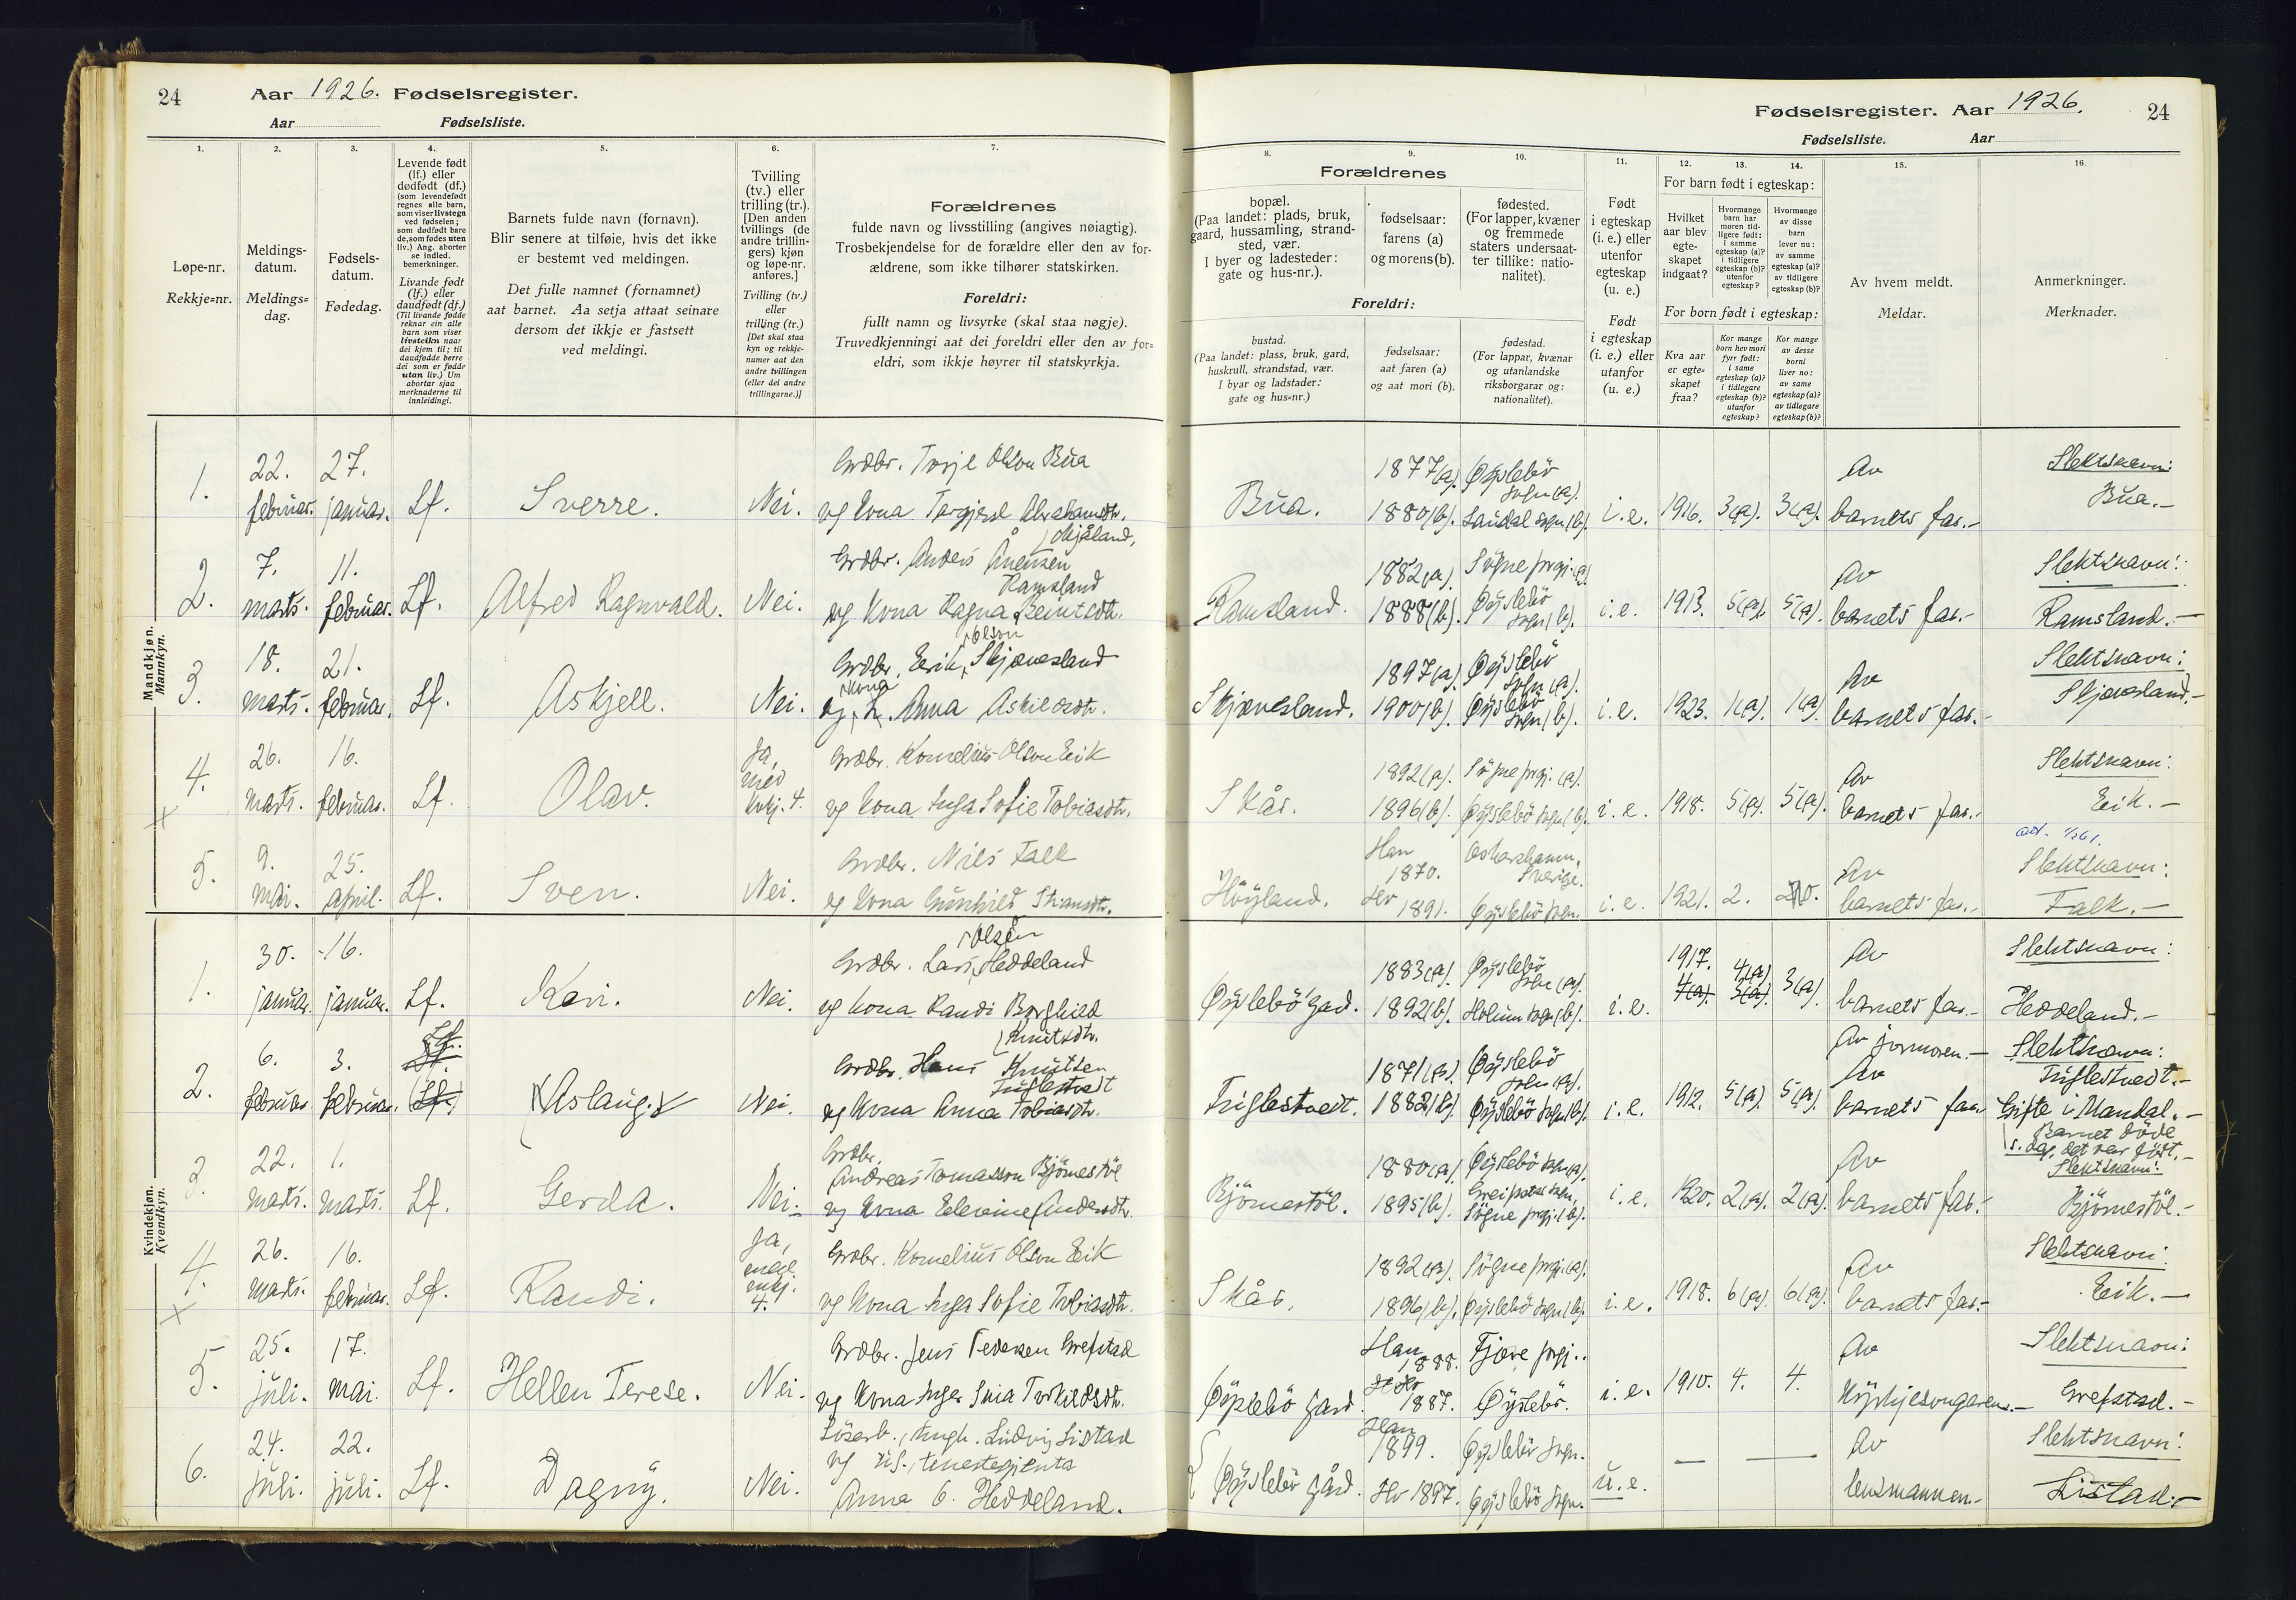 24
Aar 1926. Fødselsregister.
Aar Fødselsliste.
Fødselsregister. Aar 1926.
24
Fødselsliste. Aar
1.
2.
3.
4.
5.
6.
7.
Løpe-nr.
Rekkje=nr.
Meldings-
datum.
Meldings=
dag.
Fødsels-
datum.
Fødedag.
Levende født
(lf.) eller
dødfødt (df.)
(som levendefødt
regnes alle barn,
som viser livstegn
ved fødselen;
som dødfødt bare
de, som fødes uten
liv.) Ang. aborter
se indled.
bemerkninger.
Livande født
(lf.) eller
daudfødt (df.)
(Til livande fødde
reknar ein alle
barn som viser
livsteikn naar
dei kjem til; til
daudfødde berre
dei som er fødde
utan liv.) Um
abortar sjaa
merknaderne til
innleidingi.
Barnets fulde navn (fornavn).
Blir senere at tilføie, hvis det ikke
er bestemt ved meldingen.
Det fulle namnet (fornamnet)
aat barnet. Aa setja attaat seinare
dersom det ikkje er fastsett
ved meldingi.
Tvilling
(tv.) eller
trilling (tr.).
[Den anden
tvillings (de
andre trillin-
gers) kjøn
og løpe-nr.
anføres.]
Tvilling (tv.)
eller
trilling (tr.)
[Det skal staa
kyn og rekkje-
numer aat den
andre tvillingen
(eller dei andre
trillingarne.)]
Forældrenes
fulde navn og livsstilling (angives nøiagtig).
Trosbekjendelse for de forældre eller den av for-
ældrene, som ikke tilhører statskirken.
Foreldri:
fullt namn og livsyrke (skal staa nøgje).
Truvedkjenningi aat dei foreldri eller den av for=
eldri, som ikkje høyrer til statskyrkja.
8.
9.
10.
11.
12.
13.
14.
15.
16.
Forældrenes
bopæl.
(Paa landet: plads, bruk,
gaard, hussamling, strand-
sted, vær.
I byer og ladesteder:
gate og hus-nr.).
fødselsaar:
farens (a)
og morens (b).
fødested.
(For lapper, kvæner
og fremmede
staters undersaat-
ter tillike: natio-
nalitet).
Foreldri:
bustad.
(Paa landet: plass, bruk, gard,
huskrull, strandstad, vær.
I byar og ladstader:
gate og hus=nr.)
fødselsaar:
aat faren (a)
og aat mori (b).
fødestad.
(For lappar, kvænar
og utanlandske
riksborgarar og:
nationalitet).
Født
i egteskap
(i. e.) eller
utenfor
egteskap
(u. e.)
Født
i egteskap
(i. e.) eller
utanfor
(u. e.)
For barn født i egteskap:
Hvilket
aar blev
egte-
skapet
indgaat?
Hvormange
barn har
moren tid-
ligere født:
i samme
egteskap (a)?
i tidligere
egteskap (b)?
utenfor
egteskap?
Hvormange
av disse
barn
lever nu:
av samme
egteskap (a)?
av tidligere
egteskap (b)?
For born født i egteskap:
Kva aar
er egte=
skapet
fraa?
Kor mange
born hev mori
fyrr født:
i same
egteskap (a)?
i tidlegare
egteskap (b)?
utanfor
egteskap?
Kor mange
av desse
borni
liver no:
av same
egteskap (a)?
av tidlegare
egteskap (b)?
Av hvem meldt.
Meldar.
Anmerkninger.
Merknader.
Mandkjøn.
Mannkyn.
1. 22. februar. 27. januar. Lf. Sverre. Nei.
Grdbr. Torje Olson Bua
og kona Targjerd Abrahamsdtr.
Mjåland,
Bua. 1877(a). 1880(b). Øyslebö sogn (a). Laudal sogn (b). i. e. 1916. 3(a). 3(a). Av barnets far.- Slektsnavn: Bua.-
2. 7. marts. 11. februar. Lf. Alfred Ragnvald. Nei.
Grdbr. Anders Ånensen
Ramsland
og kona Ragna Berntsdtr.
Ramsland. 1882(a). 1888(b). Sögne prgj. (a). Øyslebö sogn (b). i. e. 1913. 5(a). 5(a). Av barnets far.- Slektsnavn: Ramsland.-
3. 18. marts. 21. februar. Lf. Askjell. Nei.
Olson
Grdbr. Eerik Skjævesland
kona
og Anna Askildsdtr.
Skjævesland. 1897(a). 1900(b). Øyslebö sogn (a). Øyslebö sogn (b). i. e. 1923. 1(a). 1(a). Av barnets far.- Slektsnavn: Skjævesland.-
4. 26. marts. 16. februar. Lf. Olav. Ja, med kvkj. 4.
Grdbr. Kornelius Olson Eik
og kona Inga Sofie Tobiasdtr.
Skår. 1892(a). 1896(b). Sögne prgj. (a). Øyslebö sogn (b). i. e. 1918. 5(a). 5(a). Av barnets far.- Slektsnavn: Eik.-
5. 9. mai. 25. april. Lf. Sven. Nei.
Grdbr. Nils Falk
og kona Gunhild
Höyland. Han 1870. Ho 1891. Oskarshamn, Sverige. Øyslebö sogn. i. e. 1921. 2. Av barnets far.- Slektsnavn: Falk.-
Kvindekjøn.
Kvendkyn.
1. 30. januar. 16. januar. Lf. Kari. Nei.
Olsen
Grdbr. Lars Heddeland
og kona Randi Borghild
Knutsdtr.
Øyslebö gard. 1883(a). 1892(b). Øyslebö sogn (a). Holum sogn (b). i. e. 1917. 4(a). 4(a). 3(a). 3(a). Av barnets far.- Slektsnavn: Heddeland.-
2. 6. februar. 3. februar. Lf. (Lf.) Aslaug. Nei.
Grdbr. Hans Knutsen
Triglestvedt
og kona Anna Tobiasdtr.
Triglestvedt. 1871(a). 1882(b). Øyslebö sogn (a). Øyslebö sogn (b). i. e. 1912. 5(a). 5(a). Av jormoren.- Av barnets far Slektsnavn: Triglestvedt.-
Gifte i Mandal.-
Barnet döde
s. dag det var födt.-
3. 22. marts. 1. marts. Lf. Gerda. Nei.
Grdbr.
Andreas Tomasson Bjørnestöl
og kona Elevine Andersdtr.
Björnestöl. 1880(a). 1895(b). Øyslebö sogn (a). Greipstad sogn, Sögne prgj. (b). i. e. 1920. 2(a). 2(a). Av barnets far. Slektsnavn: Björnestöl.-
4. 26. marts. 16. februar. Lf. Randi. Ja, med mkj. 4.
Grdbr. Kornelius Olson Eik
og kona Inga Sofie Tobiasdtr.
Skår. 1892(a). 1896(b). Sögne prgj. (a). Øyslebö sogn (b). i. e. 1918. 6(a). 6(a). Av barnets far.- Slektsnavn: Eik.-
5. 25. juli. 17. mai. Lf. Hellen Terese. Nei.
Grdbr. Jens Pedersen Grefstad
og kona Inger Torkildsdtr.
Øyslebö gard. Han 1888. Ho 1887. Fjære prgj. Øyslebö. i. e. 1910. 4. 4. Av kyrkjesongaren.- Slektsnavn: Grefstad.-
6. 24. juli. 22. juli. Lf. Dagny. Nei.
Lösarb., ungk. Ludvig Listad
og ug. tenestegjenta
Anna G. Heddeland.
Øyslebö gård. Han 1899. Ho 1897. Øyslebö sogn. Øyslebö sogn. u. e. — — Av lensmannen.- Slektsnavn: Listad.-